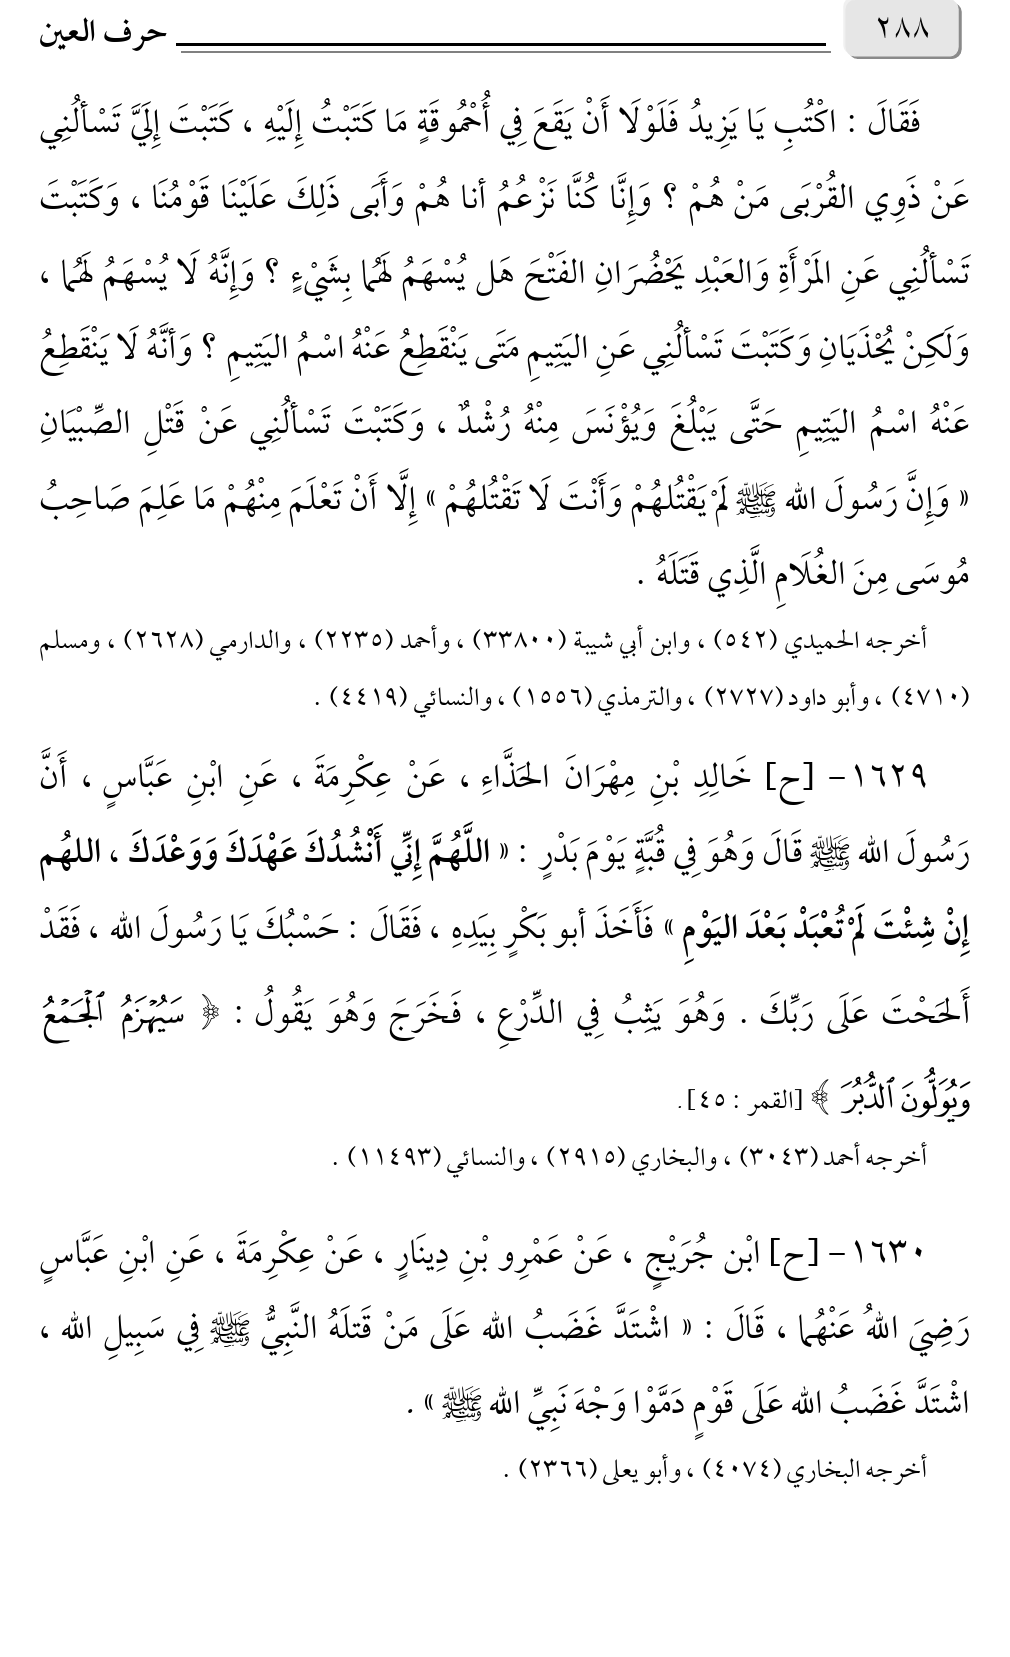 ٢٨٨ حرف العين
فَقَالَ : اكْتُبِ يَا يَزِيدُ فَلَوْلَا أَنْ يَقَعَ فِي أُحْمُوقَةٍ مَا كَتَبْتُ إِلَيْهِ ، كَتَبْتَ إِلَيَّ تَسْألُنِي
عَنْ ذَوِي القُرْبَى مَنْ هُمْ ؟ وَإِنَّا كُنَّا نَزْعُمُ أنا هُمْ وَأَبَى ذَلِكَ عَلَيْنَا قَوْمُنَا ، وَكَتَبْتَ
تَسْألُنِي عَنِ المَرْأَةِ وَالعَبْدِ يَحْضُرَانِ الفَتْحَ هَل يُسْهَمُ لَهُمَا بِشَيْءٍ ؟ وَإِنَّهُ لَا يُسْهَمُ لَهُمَا ،
وَلَكِنْ يُحْذَيَانِ وَكَتَبْتَ تَسْألُنِي عَنِ اليَتِيمِ مَتَى يَنْقَطِعُ عَنْهُ اسْمُ اليَتِيمِ ؟ وَأنَّهُ لَا يَنْقَطِعُ
عَنْهُ اسْمُ اليَتِيمِ حَتَّى يَبْلُغَ وَيُؤْنَسَ مِنْهُ رُشْدٌ ، وَكَتَبْتَ تَسْألُنِي عَنْ قَتْلِ الصِّبْيَانِ
« وَإِنَّ رَسُولَ الله ﷺ لَمْ يَقْتُلهُمْ وَأَنْتَ لَا تَقْتُلهُمْ » إِلَّا أَنْ تَعْلَمَ مِنْهُمْ مَا عَلِمَ صَاحِبُ
مُوسَى مِنَ الغُلَامِ الَّذِي قَتَلَهُ .
أخرجه الحميدي (٥٤٢) ، وابن أبي شيبة (٣٣٨٠٠) ، وأحمد (٢٢٣٥) ، والدارمي (٢٦٢٨) ، ومسلم
(٤٧١٠) ، وأبو داود (٢٧٢٧) ، والترمذي (١٥٥٦) ، والنسائي (٤٤١٩) .
١٦٢٩- [ح] خَالِدِ بْنِ مِهْرَانَ الحَذَّاءِ ، عَنْ عِكْرِمَةَ ، عَنِ ابْنِ عَبَّاسٍ ، أَنَّ
رَسُولَ الله ﷺ قَالَ وَهُوَ فِي قُبَّةٍ يَوْمَ بَدْرٍ : « اللَّهُمَّ إِنِّي أَنْشُدُكَ عَهْدَكَ وَوَعْدَكَ ، اللهُم
إِنْ شِئْتَ لَمْ تُعْبَدْ بَعْدَ اليَوْمِ » فَأَخَذَ أبو بَكْرٍ بِيَدِهِ ، فَقَالَ : حَسْبُكَ يَا رَسُولَ الله ، فَقَدْ
أَلحَحْتَ عَلَى رَبِّكَ . وَهُوَ يَثِبُ فِي الدِّرْعِ ، فَخَرَجَ وَهُوَ يَقُولُ : ﴿ سَيُهْزَمُ ٱلْجَمْعُ
وَيُوَلُّونَ ٱلدُّبُرَ ﴾ [القمر : ٤٥].
أخرجه أحمد (٣٠٤٣) ، والبخاري (٢٩١٥) ، والنسائي (١١٤٩٣) .
١٦٣٠- [ح] ابْن جُرَيْجٍ ، عَنْ عَمْرِو بْنِ دِينَارٍ ، عَنْ عِكْرِمَةَ ، عَنِ ابْنِ عَبَّاسٍ
رَضِيَ اللهُ عَنْهُمَا ، قَالَ : « اشْتَدَّ غَضَبُ الله عَلَى مَنْ قَتلَهُ النَّبِيُّ ﷺ فِي سَبِيلِ الله ،
اشْتَدَّ غَضَبُ الله عَلَى قَوْمٍ دَمَّوْا وَجْهَ نَبِيِّ الله ﷺ » .
أخرجه البخاري (٤٠٧٤) ، وأبو يعلى (٢٣٦٦) .